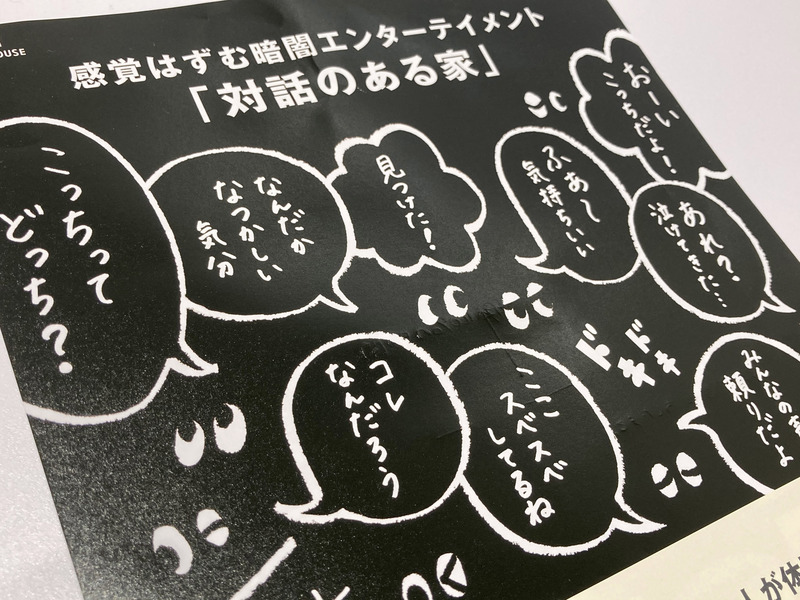 OUSE
感覚はずむ暗闇エンターテイメント
「対話のある家」
おーい
こっちだよ!
ふあ～
気持ちいい
見つけた!
なんだか
なつかしい
気分
こっちって
どっち?
あれ?
泣けてきた…
ドキドキ
コレ
なんだろう
ここ
スベスベ
してるね
みんなの
頼りだよ
が体